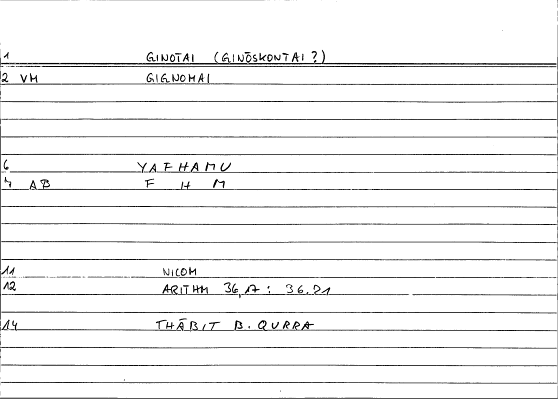 1 GINOTAI (GINŌSKONTAI?)
2 VM GIGNOMAI
6 YAFHAMU
7 AB F H M
11 NICOM
12 ARITHM 36,17 : 36.21
14 THĀBIT B. QURRA